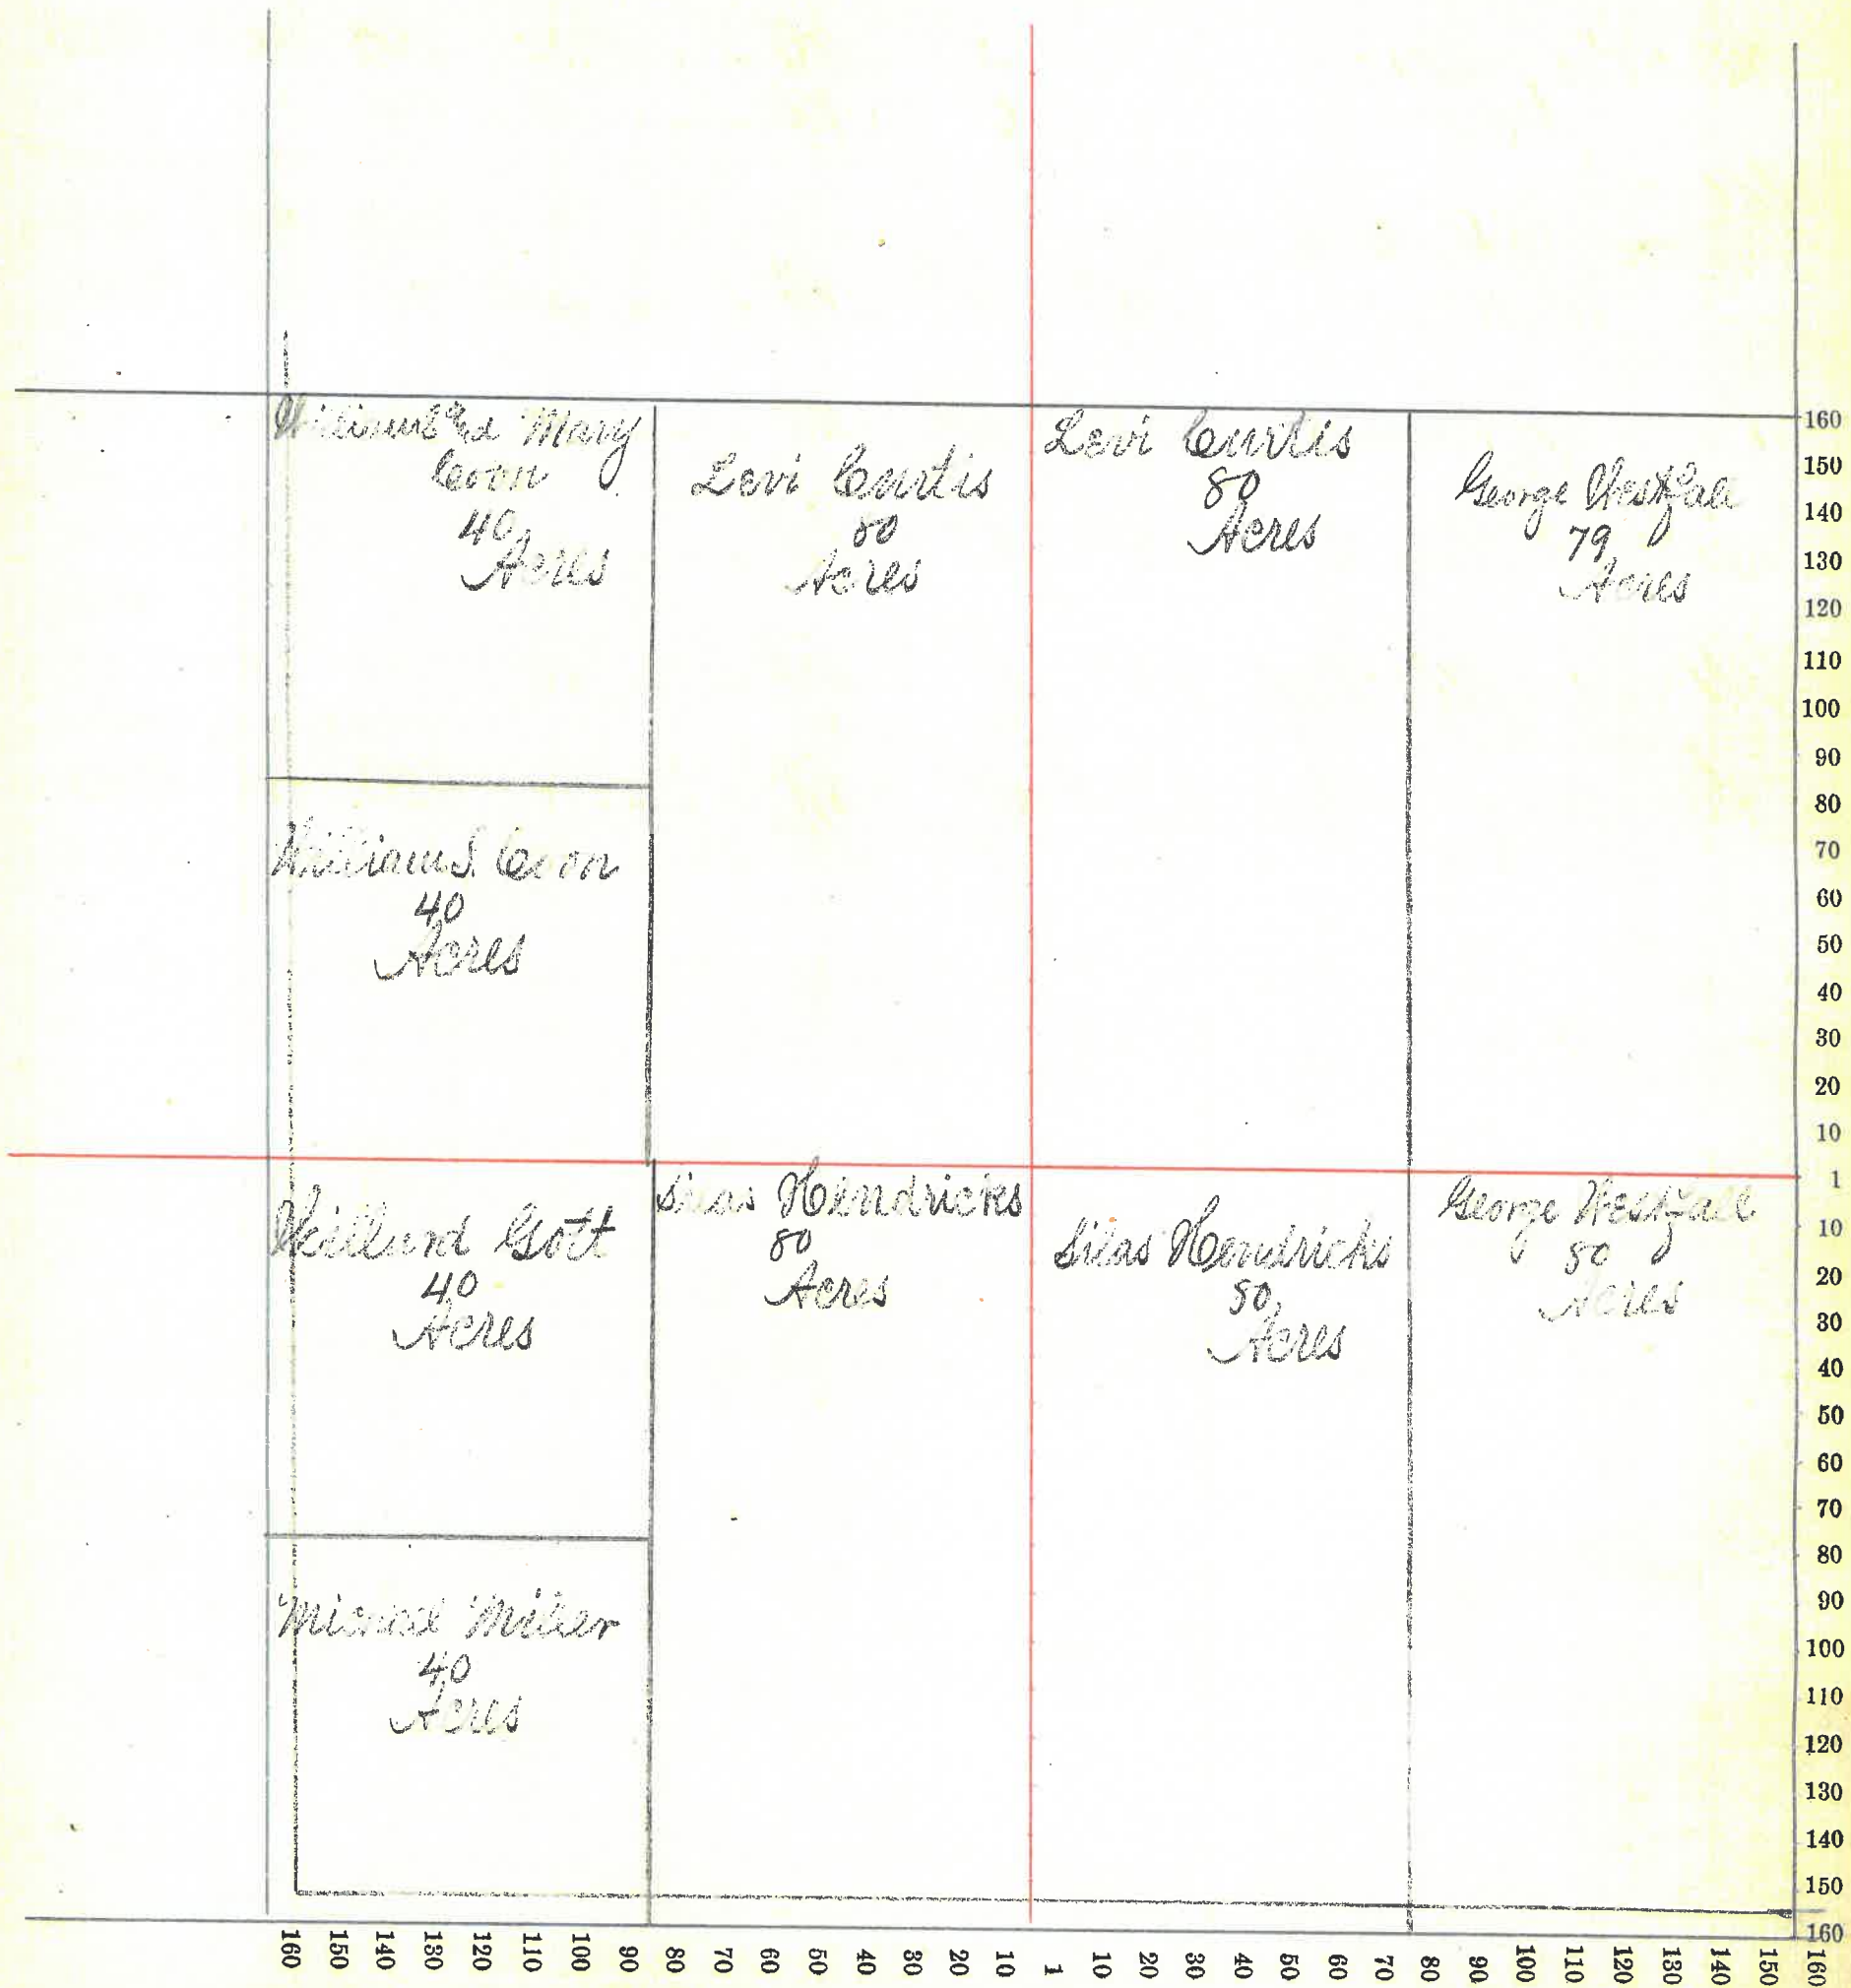 William S. and Mary
Coon
40
Acres
Levi Curtis
80
Acres
Levi Curtis
80
Acres
George Westfall
79
Acres
William S. Coon
40
Acres
Willard Gott
40
Acres
Silas Hendricks
80
Acres
Silas Hendricks
80
Acres
George Westfall
80
Acres
Michael Miller
40
Acres
160
150
140
130
120
110
100
90
80
70
60
50
40
30
20
10
1
10
20
30
40
50
60
70
80
90
100
110
120
130
140
150
160
160 150 140 130 120 110 100 90 80 70 60 50 40 30 20 10 1 10 20 30 40 50 60 70 80 90 100 110 120 130 140 150 160